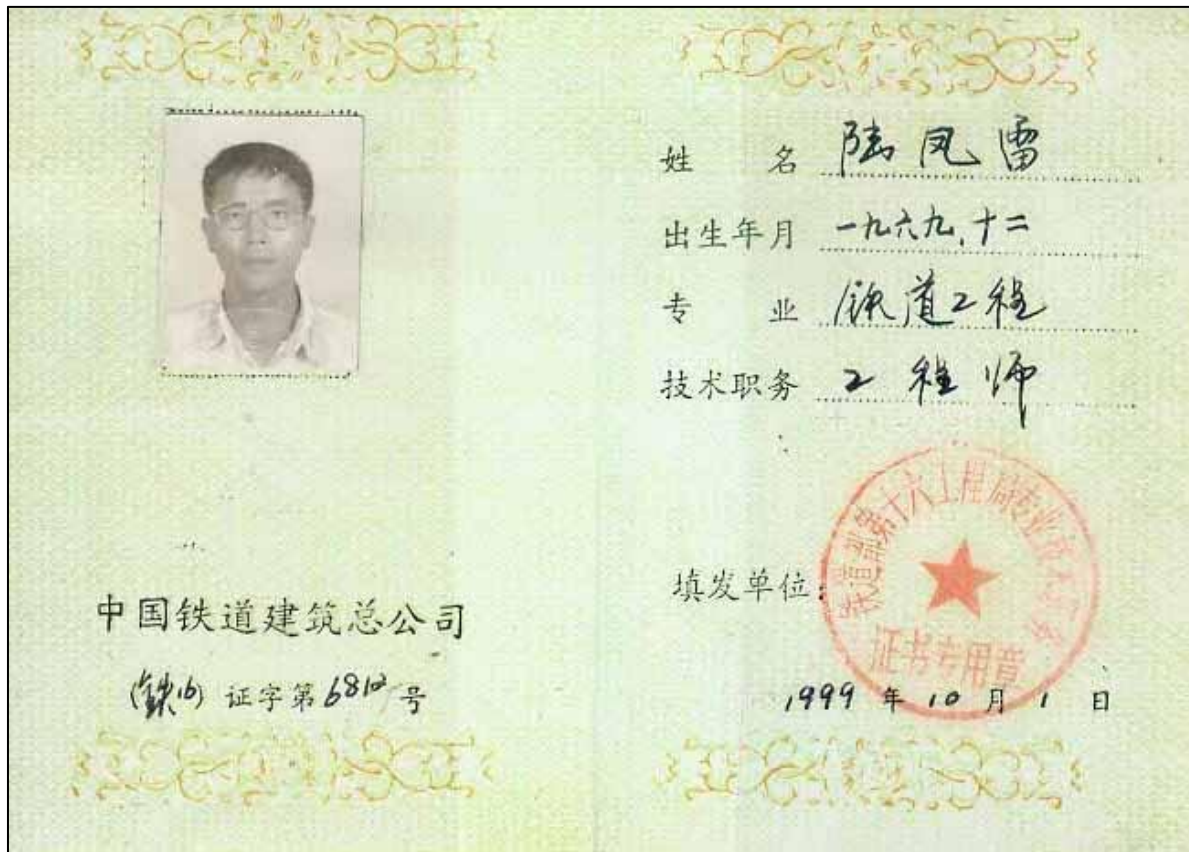 中国铁道建筑总公司
(铁16) 证字第6812号
姓 名 陆凤雷
出生年月 一九六九.十二
专 业 铁道工程
技术职务 工程师
填发单位:
铁道部第十六工程局专业技术
证书专用章
1999 年 10 月 1 日